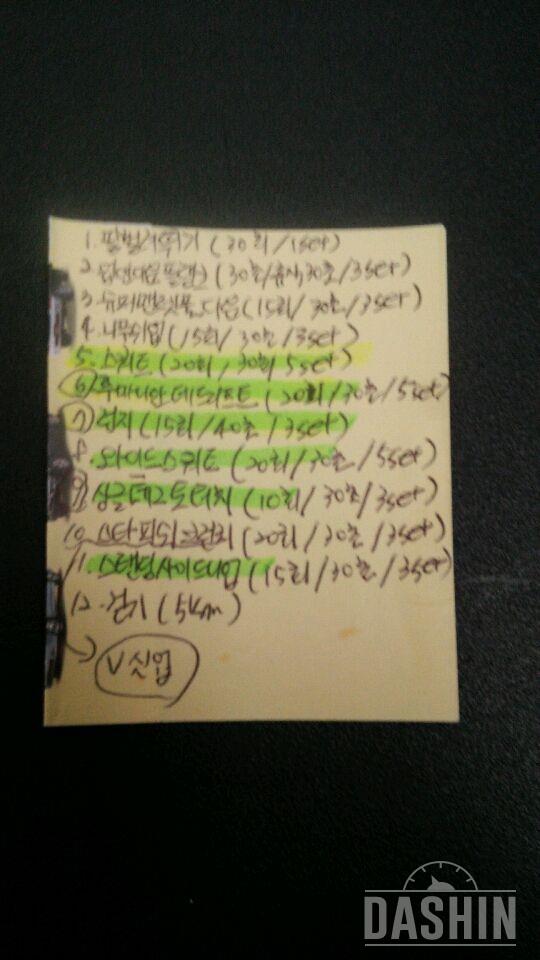 1. 팔벌려뛰기 (30회/1set)
2. 업앤다운플랭크 (30초/휴식30초/3set)
3. 슈퍼맨 (15회/30초/3set)
4. 니푸쉬업 (15회/30초/3set)
5. 스쿼트 (20회/30회 5set)
6) 루마니안데드리프트 (20회/30초/5set)
7) 런지 (15회/40초/3set)
8. 와이드스쿼트 (20회/30초/5set)
9) 싱글레그토터치 (10회/30초/3set)
10. 스타피쉬크런치 (20회/30초/3set)
11. 스탠딩사이드니업 (15회/30초/3set)
12. 걷기 (5km)
V싯업
DASHIN